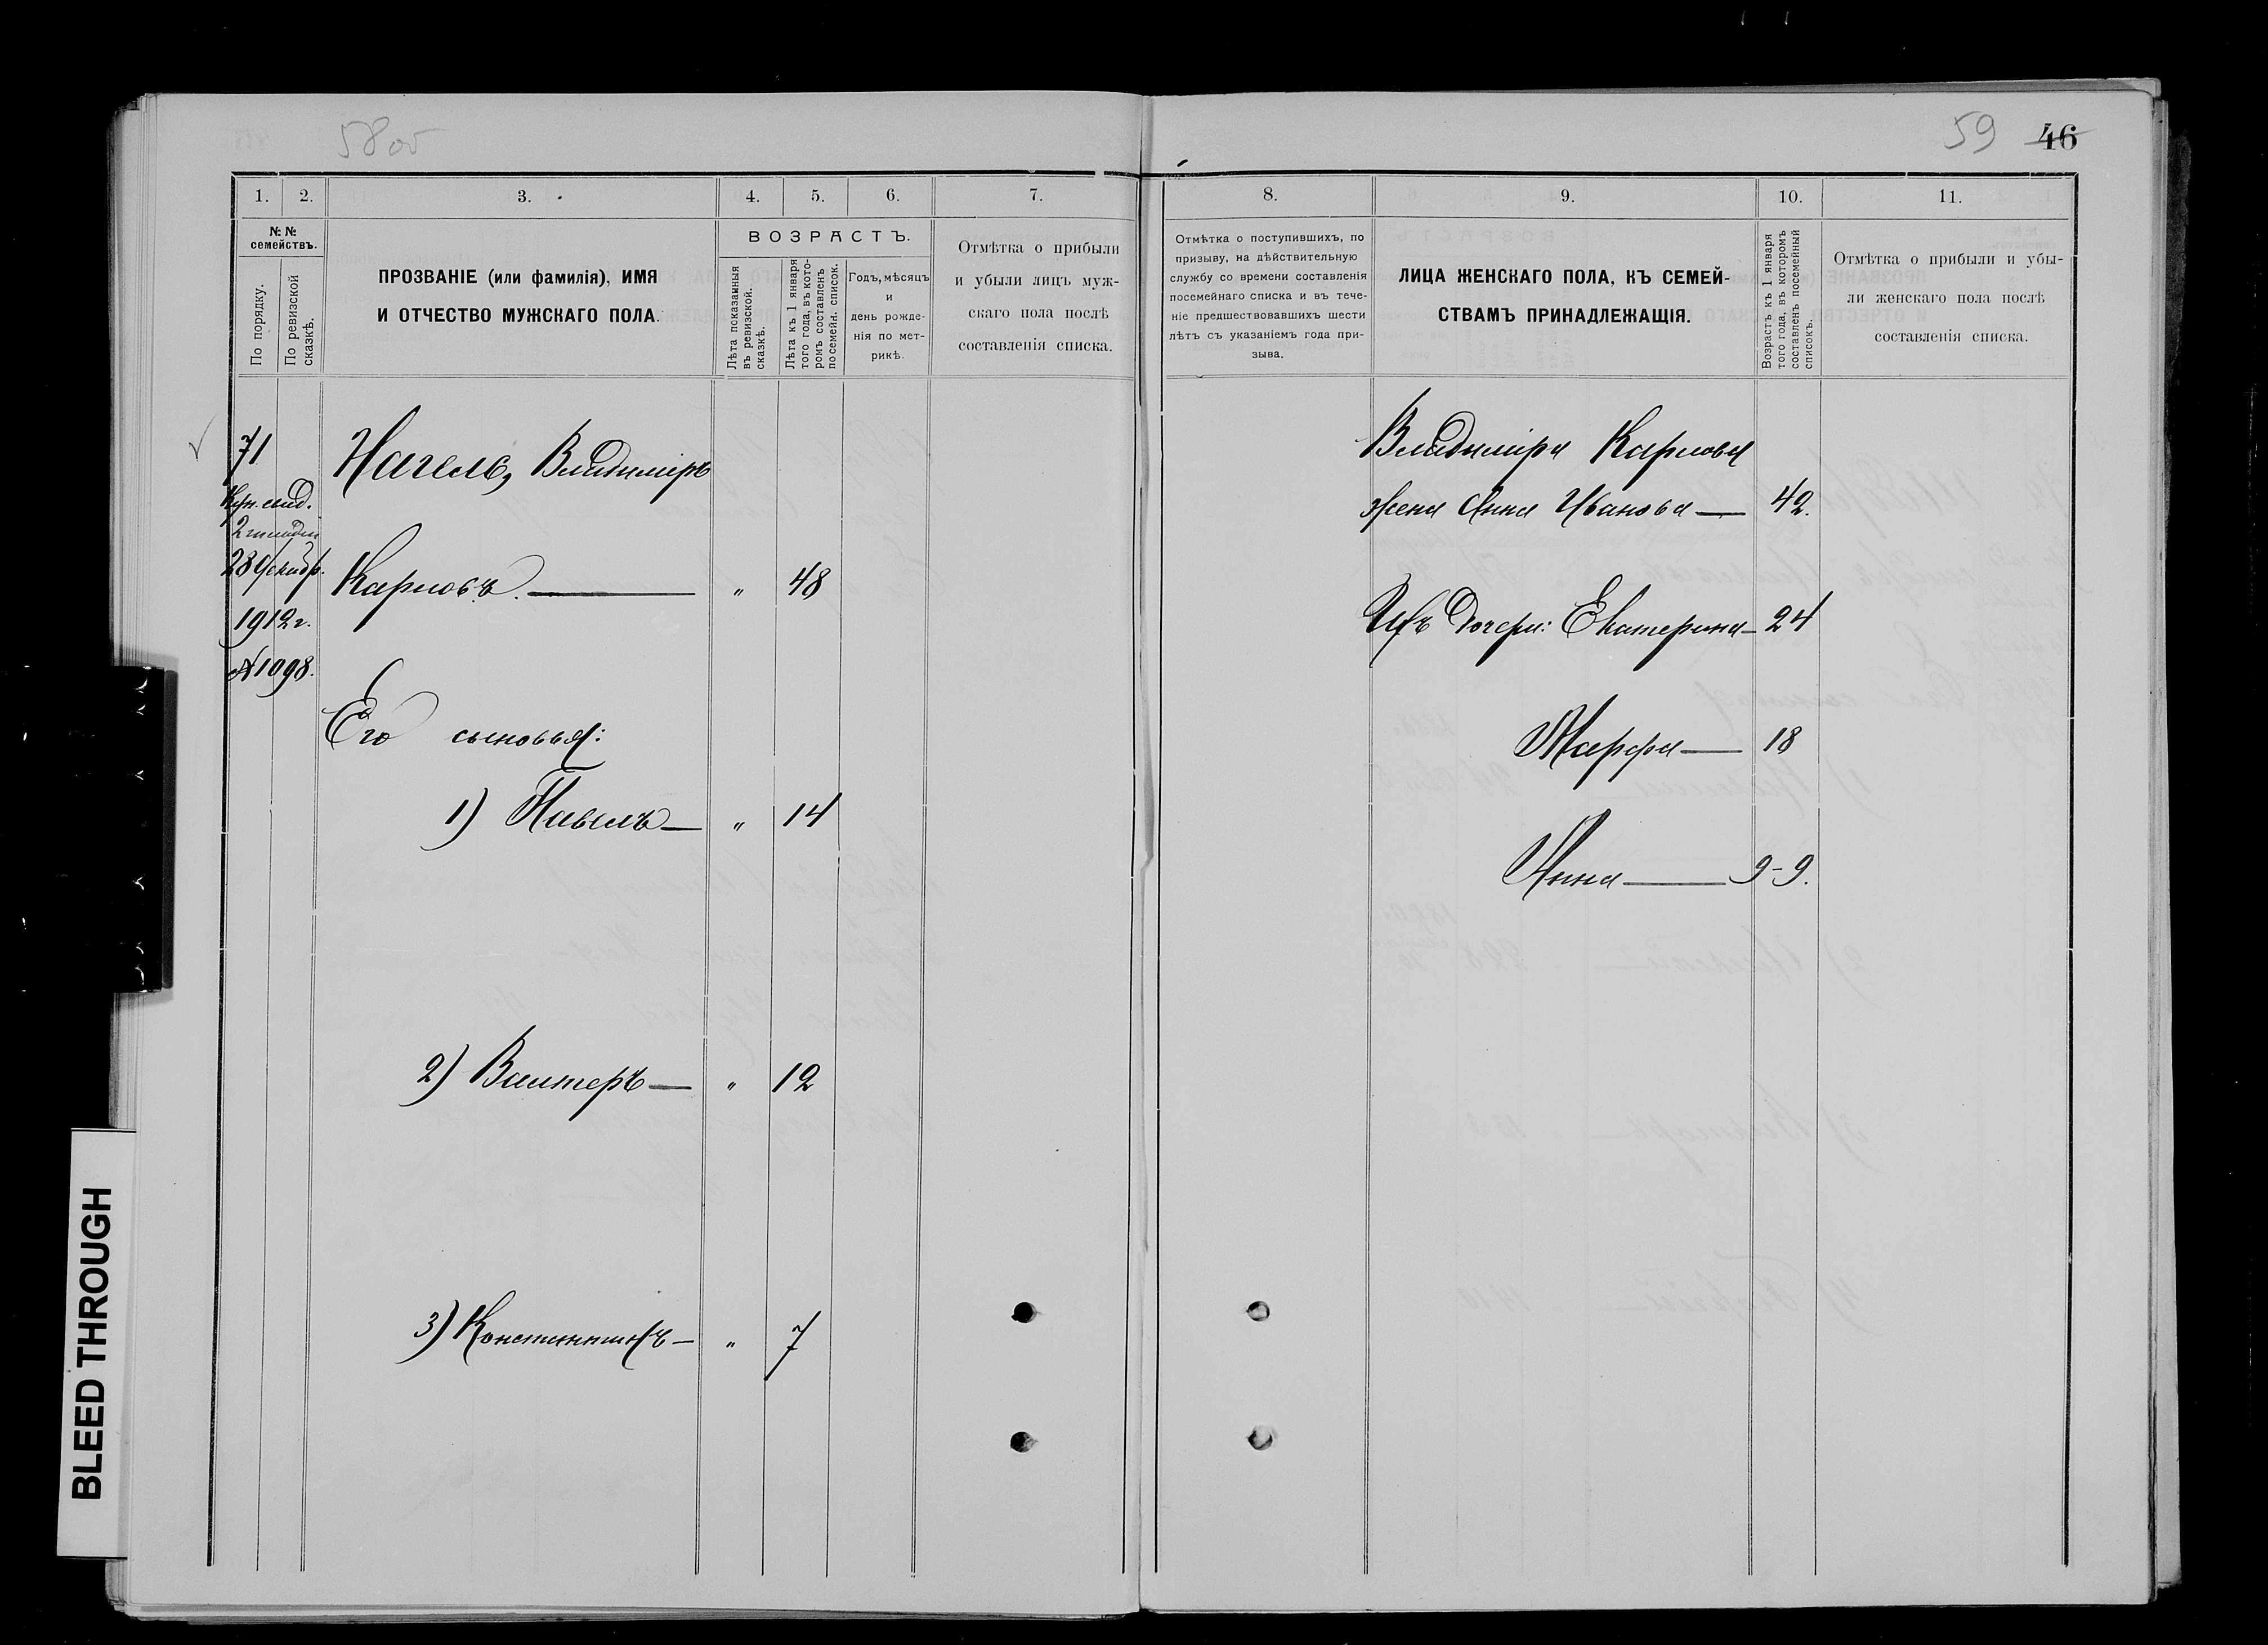 58об
59 46
1. 2. 3. 4. 5. 6. 7.
№ № семействъ.
По порядку.
По ревизской сказкѣ.
ПРОЗВАНІЕ (или фамилія), ИМЯ
И ОТЧЕСТВО МУЖСКАГО ПОЛА.
ВОЗРАСТЪ.
Лѣта показанныя
въ ревизской.
сказкѣ.
Лѣта къ 1 января
того года, въ кото-
ромъ составленъ
посемейн. список.
Годъ, мѣсяцъ
и
день рожде-
нія по мет-
рикѣ.
Отмѣтка о прибыли
и убыли лицъ муж-
скаго пола послѣ
составленія списка.
71
Куп. свид.
2 гильдіи
28 Декабр.
1912 г.
№ 1098.
Нагель, Владиміръ
Карловъ. — " 48
Его сыновья:
1) Павелъ — " 14
2) Валтеръ — " 12
3) Константинъ — " 7
8. 9. 10. 11.
Отмѣтка о поступившихъ, по
призыву, на дѣйствительную
службу со времени составленія
посемейнаго списка и въ тече-
ніе предшествовавшихъ шести
лѣтъ съ указаніемъ года при-
зыва.
ЛИЦА ЖЕНСКАГО ПОЛА, КЪ СЕМЕЙ-
СТВАМЪ ПРИНАДЛЕЖАЩІЯ.
Возрастъ къ 1 января
того года, въ которомъ
составленъ посемейный
списокъ.
Отмѣтка о прибыли и убы-
ли женскаго пола послѣ
составленія списка.
Владиміра Карлова
жена Анна Иванова — 42.
Ихъ дочери: Екатерина — 24
Марфа — 18
Анна — 9-9.
BLEED THROUGH